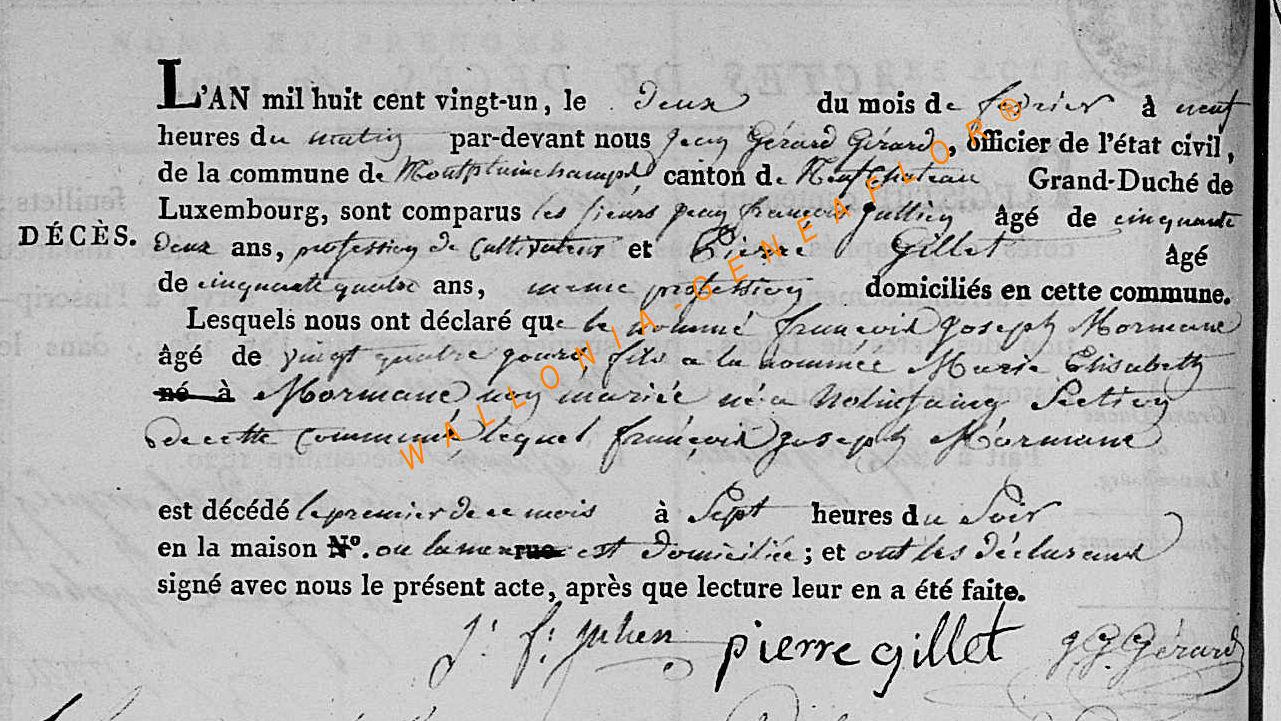 L'AN mil huit cent vingt-un, le deux du mois de fevrier à neuf
heures du matin par-devant nous jean Gérard Gérard, officier de l'état civil,
de la commune de Montplainchamps canton de Neufchateau Grand-Duché de
Luxembourg, sont comparus les sieurs jean françois jullien âgé de cinquante
DÉCÈS.
deux ans, profession de Cultivateur et Pierre Gillet âgé
de cinquante quatre ans, meme profession domiciliés en cette commune.
Lesquels nous ont déclaré que le nommé françois joseph Mormane
âgé de vingt quatre jours, fils a la nommée Marie Elisabeth
né à Mormane non mariée né a Nolinfaing Section
de cette commune lequel françois joseph Mormane
est décédé le premier de ce mois à Sept heures du Soir
en la maison N°. ou la mere rue est domiciliée ; et ont les déclarant
signé avec nous le présent acte, après que lecture leur en a été faite.
j. f. julien pierre gillet g. G. Gérard
WALLONIA-GENEAFLOR®